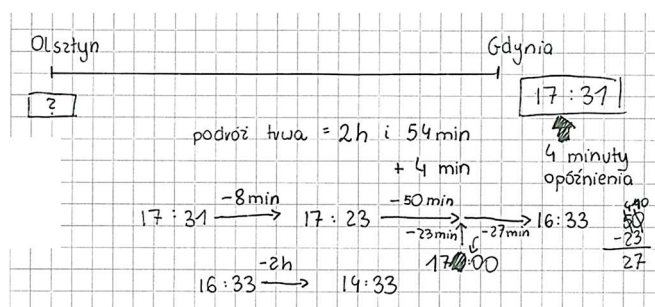 Olsztyn Gdynia
? 17:31
podróż trwa = 2h i 54 min
+ 4 min
4 minuty
opóźnienia
17:31 -8min 17:23 -50min 16:33
-23min -27min
17:00
50
-23
27
16:33 -2h 14:33